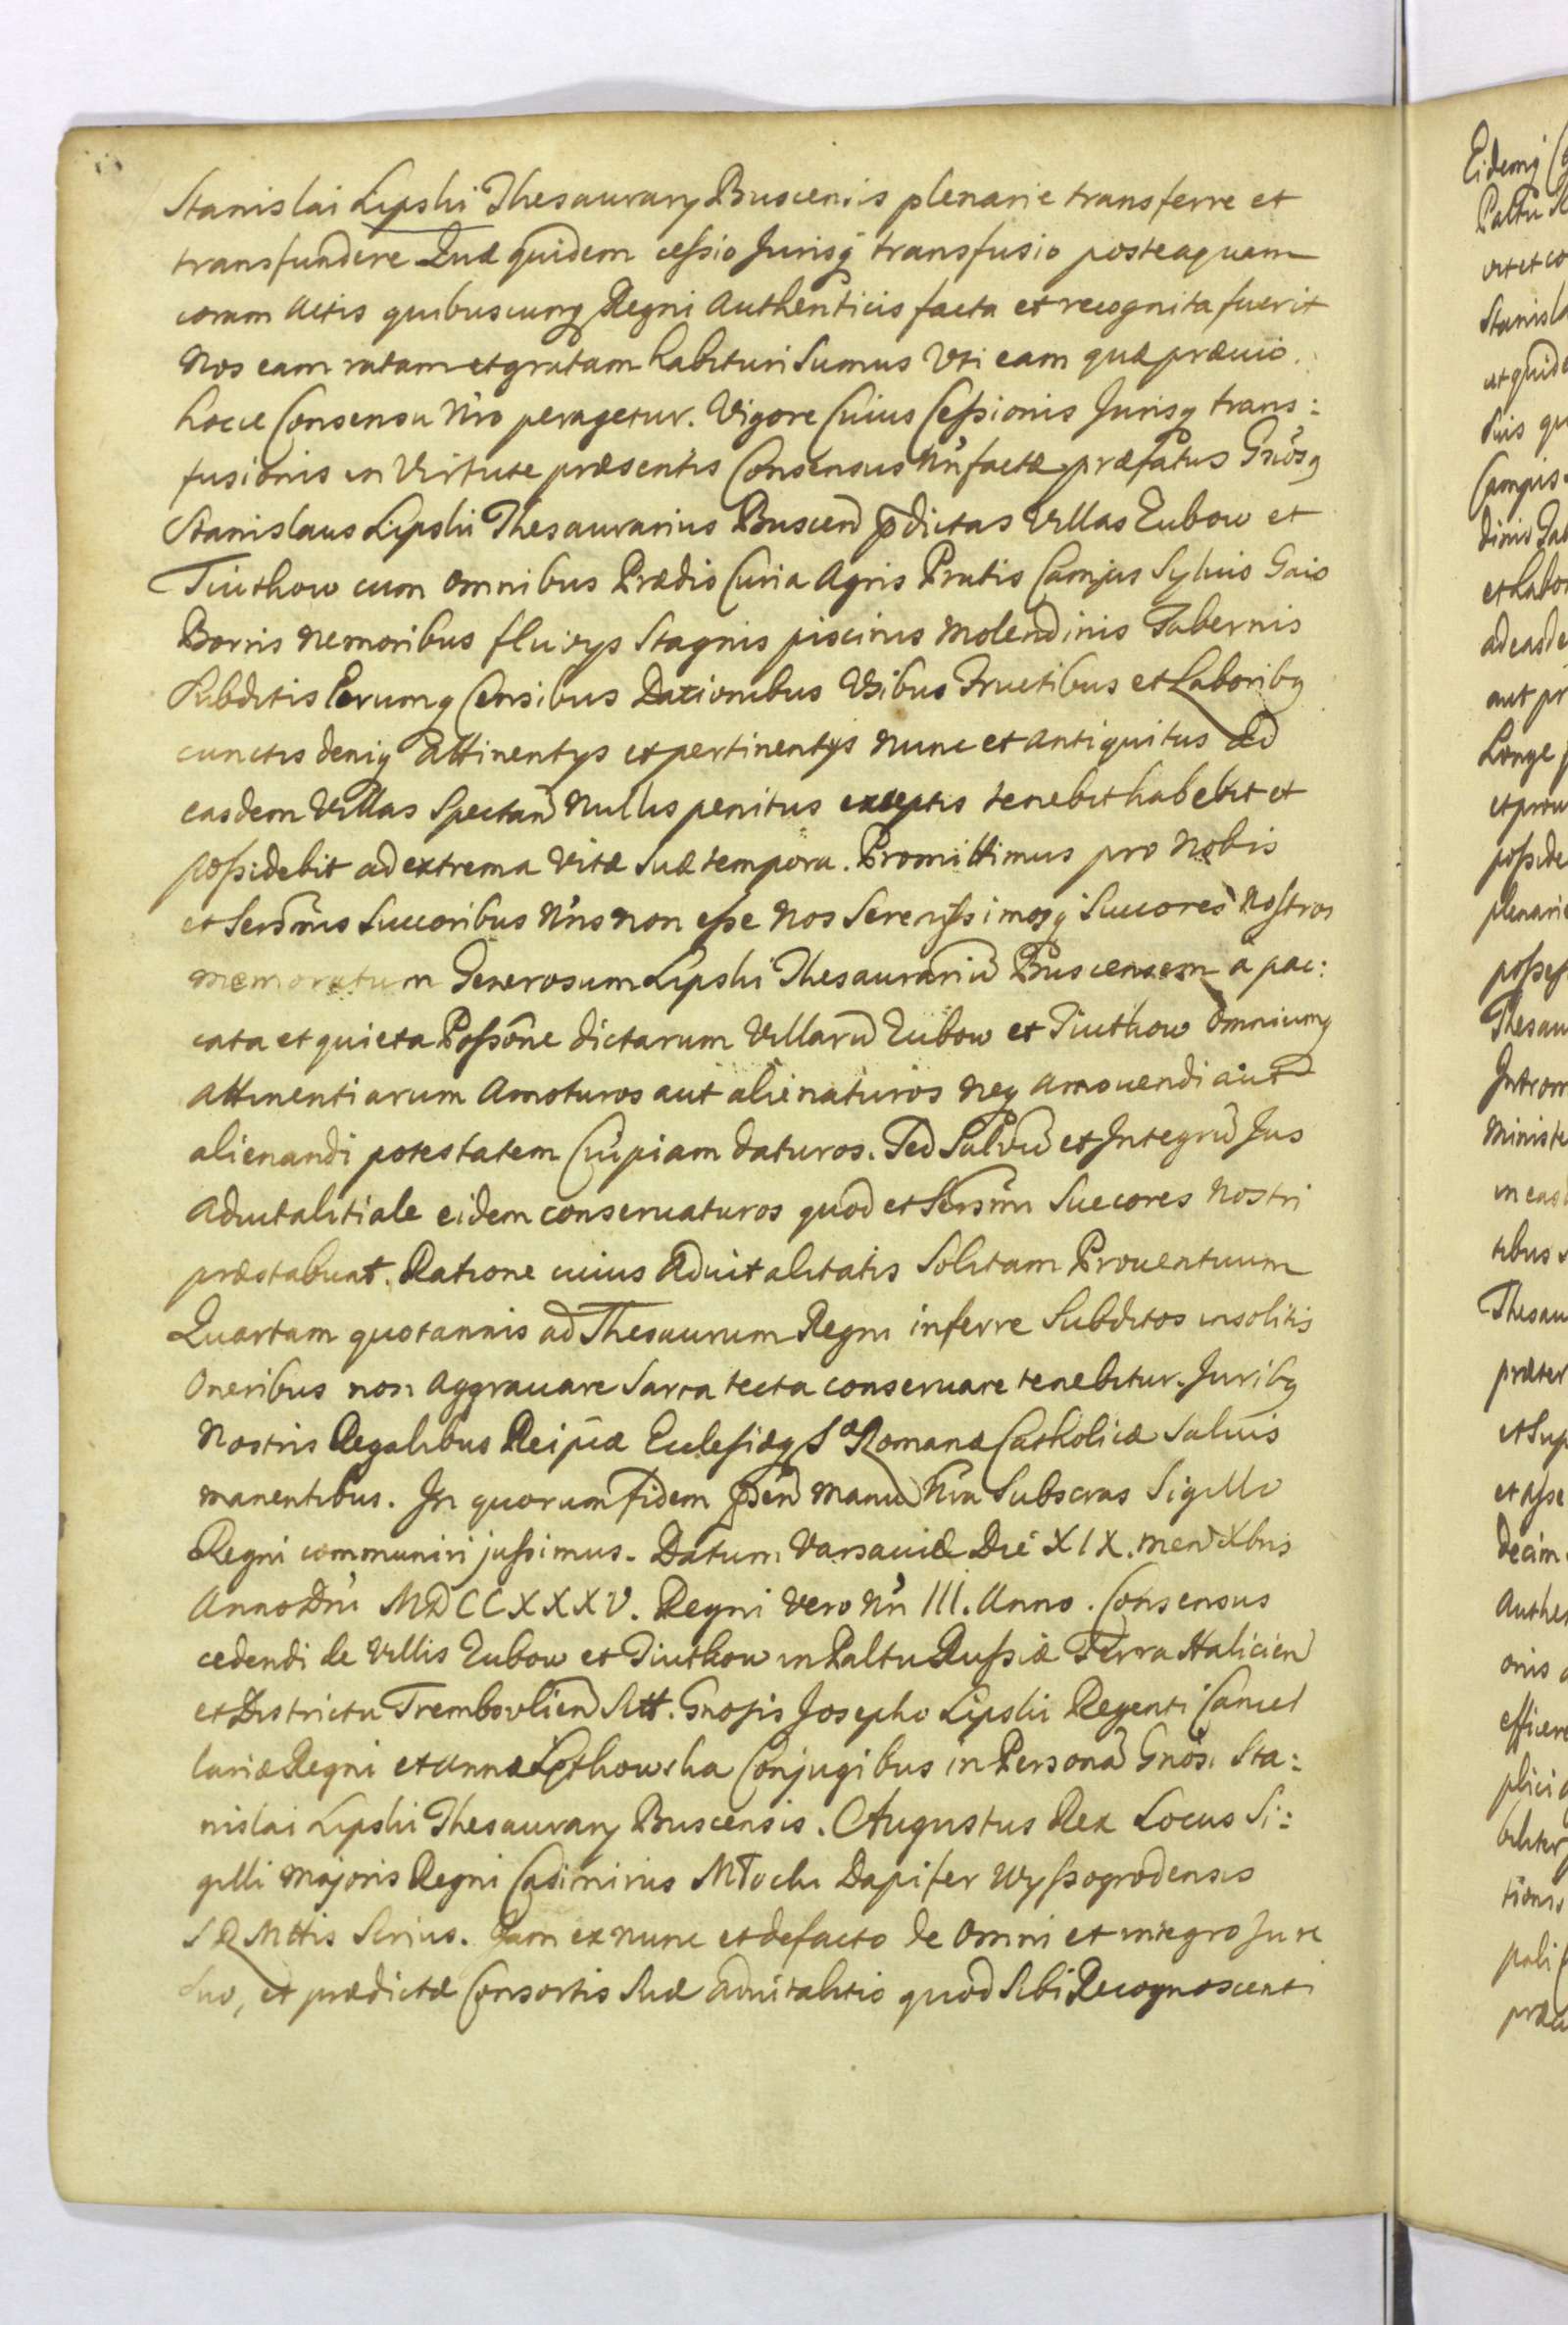 Stanislai Lipski Thesaurary Buscensis plenarie transferre et
transfundere Quæ quidem cessio Jurisq transfusio posteaquam
coram Actis quibuscunq Regni Authenticis facta et recognita fuerit
Nos eam ratam et gratam habituri Sumus Uti eam quæ prævio
hocce Consensu Nro peragetur. Vigore Cuius Cessionis Jurisq trans:
fusionis in Virtute præsentis Consensus Nri factæ præfatus Gnosq
Stanislaus Lipski Thesaurarius Buscen pdictas Villas Zubow et
Tiutkow cum omnibus Prædis Curia Agris Pratis Campis Sylvis Gais
Borris Nemoribus fluvys Stagnis piscinis Molendinis Tabernis
Subditis Eorumq Censibus Dationibus Usibus Fructibus et Laboribq
cunctis deniq Attinentys et pertinentys nunc et antiquitus ad
easdem Villas Spectan Nullis penitus exceptis tenebit habebit et
possidebit ad extrema Vitæ Suæ tempora. Promittimus pro Nobis
et Sersmis Succoribus Nris non esse Nos Serenissimosq Succores Nostros
memoratum Generosum Lipski Thesaurariu Buscensem à pac:
cata et quieta Possone dictarum Villaru Zubow et Tiutkow Omniumq
Attinentiarum Amoturos aut alienaturos Neq amovendi aut
alienandi potestatem Cuipiam daturos. Sed Salvu et Integru Jus
advitalitiale eidem conservaturos quod et Sersmi Succores Nostri
præstabunt. Ratione cuius Advitalitatis Solitam Proventuum
Quartam quotannis ad Thesaurum Regni inferre Subditos insolitis
Oneribus non Aggravare Sarta tecta conservare tenebitur. Juribq
Nostris Regalibus Reipcæ Ecclesiæq Sæ Romanæ Catholicæ Salvis
manentibus. In quorum fidem psen Manu Nra Subscras Sigillo
Regni communiri jussimus. Datum Varsaviæ Die XIX. men Xbris
Anno Dni MDCCXXXV. Regni Vero Nri III. Anno. Consensus
cedendi de Villis Zubow et Tiutkow in Paltu Russiæ Terra Halicien
et Districtu Trembovlien Sitt. Gnosis Josepho Lipski Regenti Cancel
lariæ Regni et Annæ Lethowska Conjugibus in Persona Gnos. Sta:
nislai Lipski Thesaurary Buscensis. Augustus Rex Locus Si:
gilli Majoris Regni Casimirus Młocki Dapifer Wyssogrodensis
S R Mttis Scrius. Jam ex nunc et de facto de omni et integro Jure
Suo, et prædictæ Consortis Suæ advitalitio quod Sibi Recognoscenti